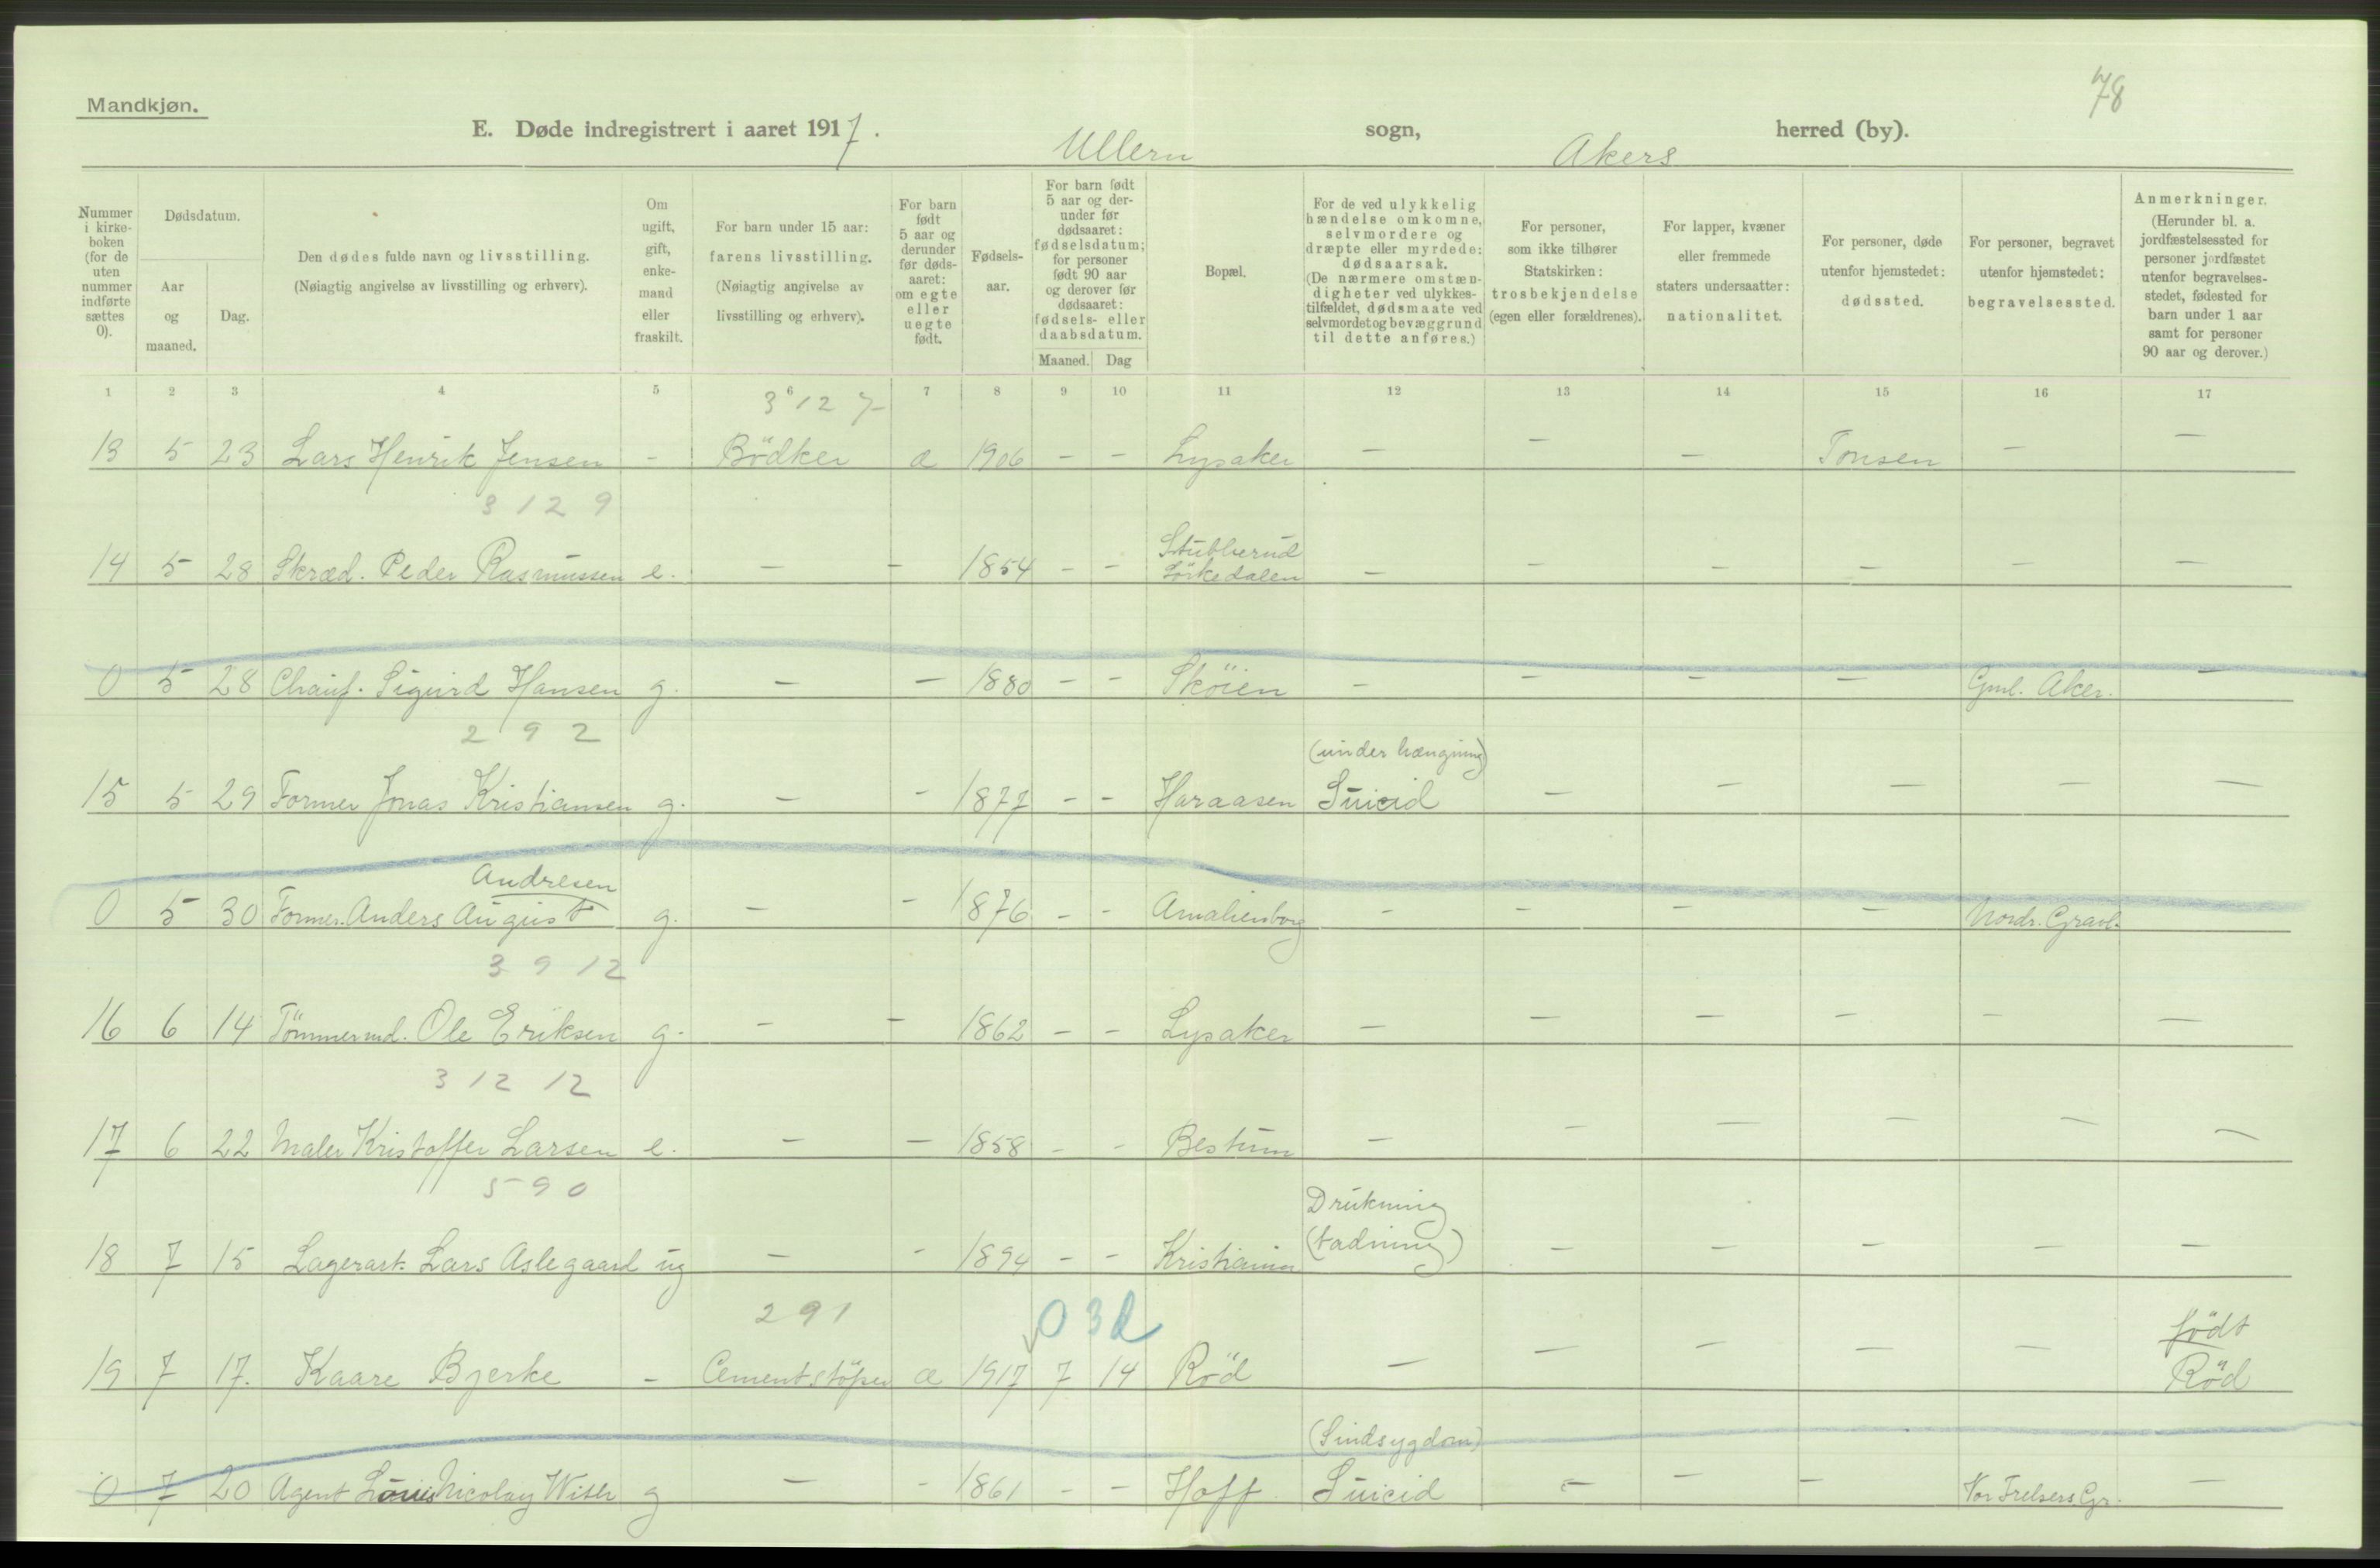 78
Mandkjøn.
E. Døde indregistrert i aaret 1917.
Ullern sogn, Akers herred (by).
Nummer i kirke-boken (for de uten nummer indførte sættes 0).
Dødsdatum.
Aar og maaned.
Dag.
Den dødes fulde navn og livsstilling.
(Nøiagtig angivelse av livsstilling og erhverv).
Om ugift, gift, enke-mand eller fraskilt.
For barn under 15 aar: farens livsstilling.
(Nøiagtig angivelse av livsstilling og erhverv).
For barn født 5 aar og derunder før døds-aaret: om egte eller uegte født.
Fødsels-aar.
For barn født 5 aar og der-under før dødsaaret: fødselsdatum; for personer født 90 aar og derover før dødsaaret: fødsels- eller daabsdatum.
Maaned.
Dag
Bopæl.
For de ved ulykkelig hændelse omkomne, selvmordere og dræpte eller myrdede: dødsaarsak.
(De nærmere omstæn-digheter ved ulykkes-tilfældet, dødsmaate ved selvmordet og bevæggrund til dette anføres.)
For personer, som ikke tilhører Statskirken: trosbekjendelse (egen eller forældrenes).
For lapper, kvæner eller fremmede staters undersaatter: nationalitet.
For personer, døde utenfor hjemstedet: dødssted.
For personer, begravet utenfor hjemstedet: begravelsessted.
Anmerkninger.
(Herunder bl. a. jordfæstelsessted for personer jordfæstet utenfor begravelses-stedet, fødested for barn under 1 aar samt for personer 90 aar og derover.)
1 2 3 4 5 6 7 8 9 10 11 12 13 14 15 16 17
3 12 7
13 5 23 Lars Henrik Jensen - Bödker æ 1906 - - Lysaker - - - Tonsen - -
3 12 9
Stubberud
14 5 28 Skræd. Peder Rasmussen e. - - 1854 - - Sörkedalen - - - - - -
0 5 28 Chauf. Sigurd Hansen g. - - 1880 - - Sköien - - - - Gml. Aker. -
2 9 2
(under hængning)
15 5 29 Former Jonas Kristiansen g. - - 1877 - - Haraasen Suicid - - - - -
Andresen
0 5 30 Former. Anders August g. - - 1876 - - Amalienborg - - - - Nordr. Gravl.
3 9 12
16 6 14 Tömmermd. Ole Eriksen g. - - 1862 - - Lysaker - - - - - -
3 12 12
17 6 22 Maler Kristoffer Larsen e. - - 1858 - - Bestum - - - - - -
5 9 0
Drukning
18 7 15 Lagerarb. Lars Aslegaard ug - - 1894 - - Kristiania (badning) - - - - -
2 9 1
0 3 d
födt
19 7 17. Kaare Bjerke - Cementstöper æ 1917 7 14 Röd - - - - - Röd
(Sindsygdom)
0 7 20 Agent Louis Nicolay With g - - 1861 - - Hoff Suicid - - - Vor Frelsers Gr. -